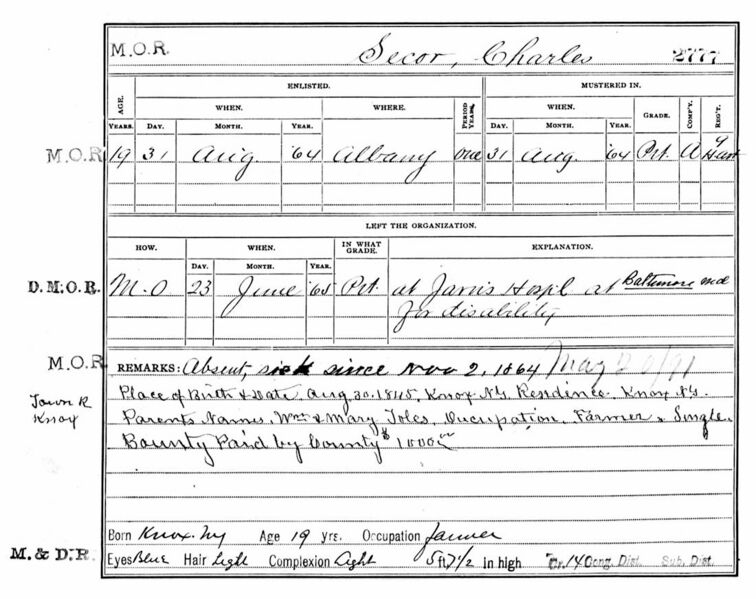 M.O.R. Secor, Charles 2777
ENLISTED. MUSTERED IN.
AGE. WHEN. WHERE. PERIOD YEARS. WHEN. GRADE. COMP'Y. REG'T.
YEARS. DAY. MONTH. YEAR. DAY. MONTH. YEAR.
M.O.R 19 31 Aug. '64 Albany One 31 Aug. '64 Pvt. A 7 H Art
LEFT THE ORGANIZATION.
HOW. WHEN. IN WHAT GRADE. EXPLANATION.
DAY. MONTH. YEAR.
D.M.O.R. M.O 23 June '65 Pvt. at Jarvis Hospl at Baltimore Md
for disability
M.O.R. REMARKS: Absent, sick since Nov 2, 1864 May 20/91
Town R Place of Birth & Date, Aug. 30. 1845, Knox N.Y. Residence. Knox N.Y.
Knox Parents Names, Wm & Mary Toles, Occupation, Farmer, Single.
Bounty Paid by County $1000
Born Knox. NY Age 19 yrs. Occupation farmer
M. & D.R. Eyes Blue Hair Light Complexion Light 5 ft 7 1/2 in high Cr. 14 Cong. Dist. Sub. Dist.